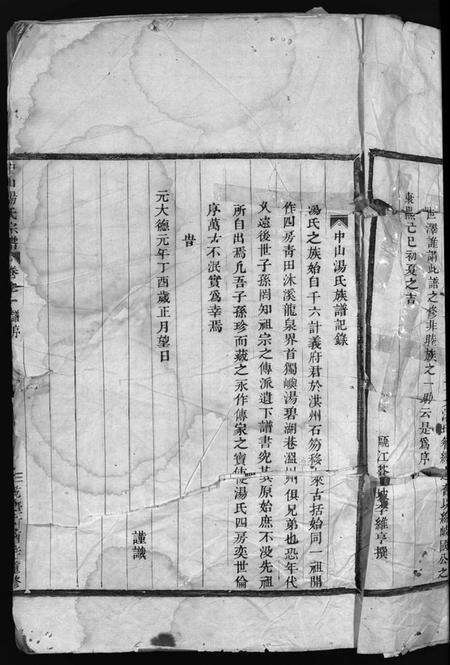 世澤誰謂此譜之修非勝族之一助云是爲序
己巳初夏之吉
李維亭撰
中山湯氏族譜記錄
湯氏之族始自千六計義府君於洪州石笏移來古括始同一祖開
作四房青田沐溪龍泉界首獨嶼湯碧湖巷溫州俱兄弟也恐年代
久遠後世子孫罔知祖宗之傳派遺下譜書究其原始庶不没先祖
所自出焉凡吾子孫珍而藏之永作傳家之寶使湯氏四房奕世倫
序萬古不泯實爲幸焉
昔
元大德元年丁酉歲正月望日
謹識
中山湯氏宗譜 卷之一 譜序